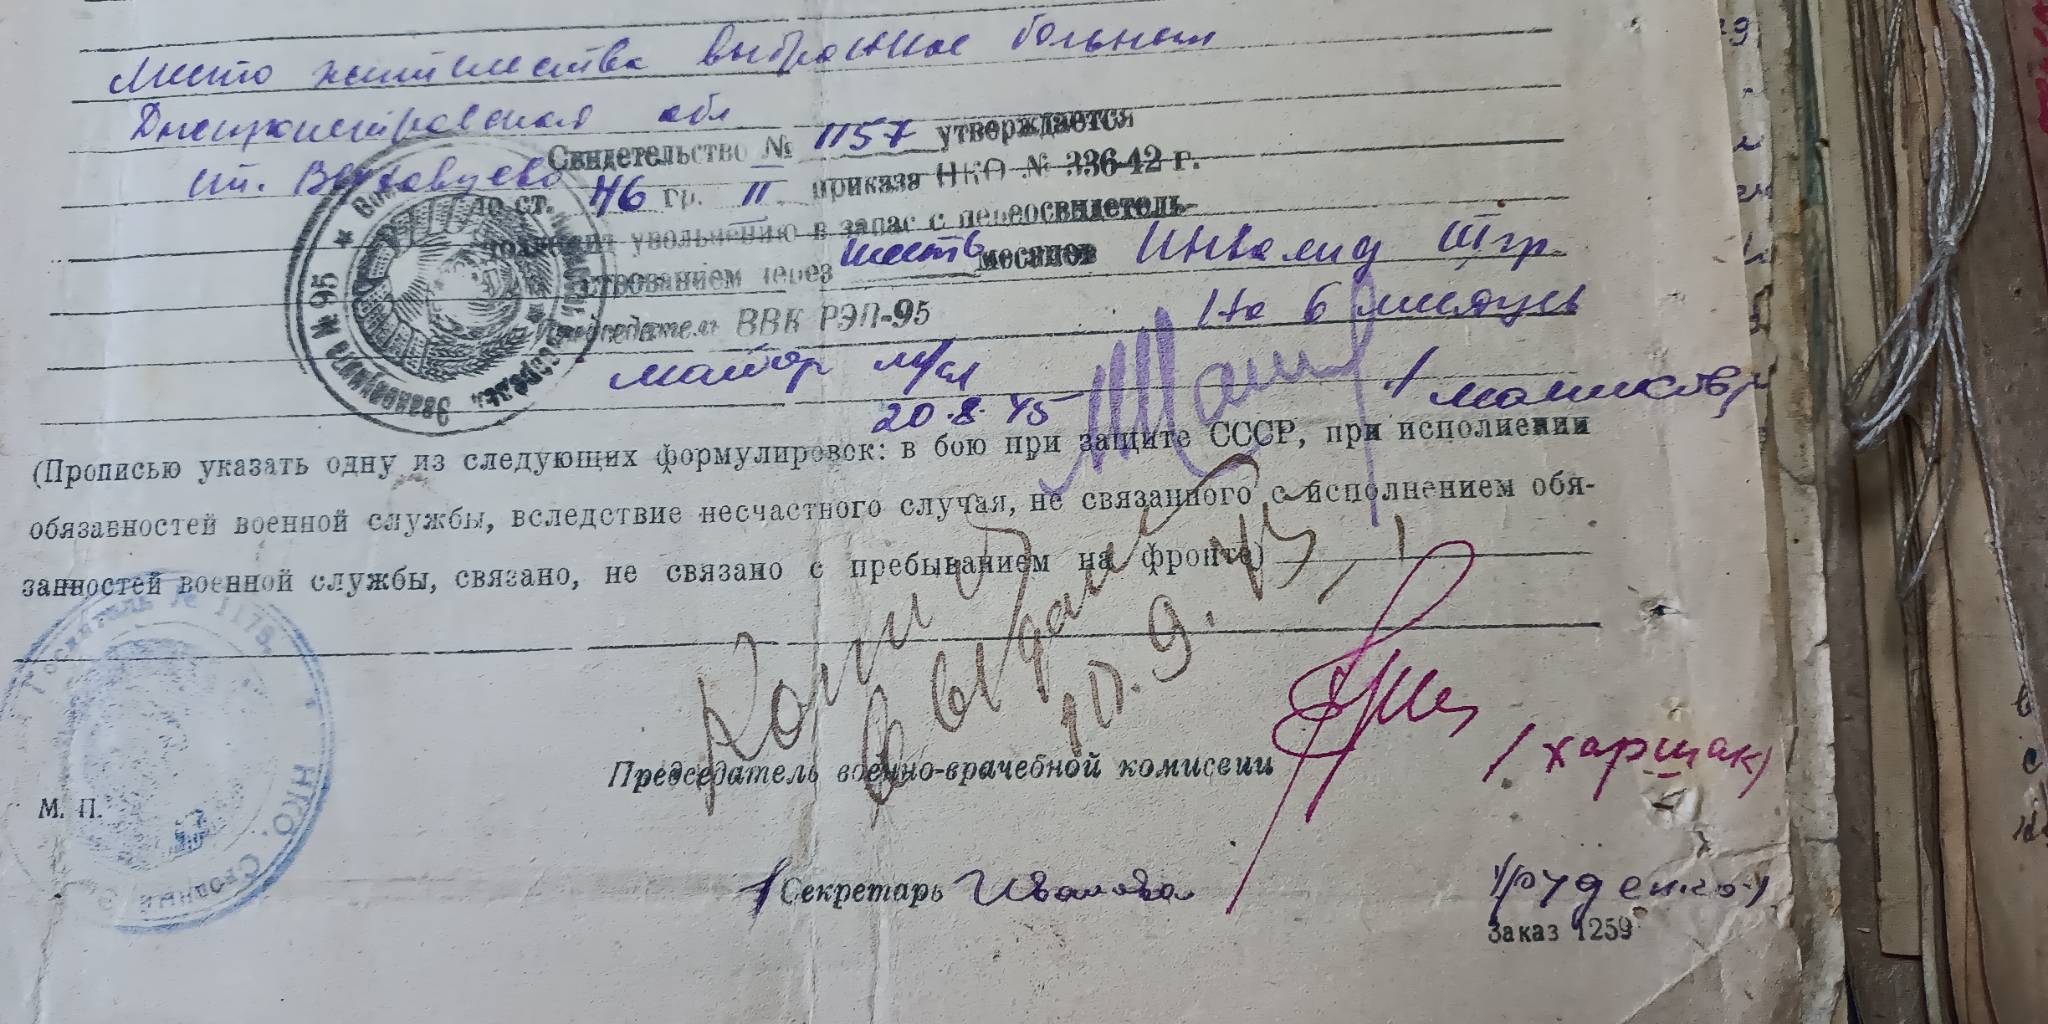 Место жительства выбранное больным
Днепропетровская обл
ст. Верховцево
Свидетельство № 1157 утверждается
по ст. 46 гр. II приказа НКО № 336-42 г.
подлежит увольнению в запас с переосвидетель-
ствованием через шесть месяцев Инвалид III гр.
Председатель ВВК РЭП-95 На 6 месяцев
майор м/сл
20.8.45
(Прописью указать одну из следующих формулировок: в бою при защите СССР, при исполнении
обязавностей военной службы, вследствие несчастного случая, не связанного с исполнением обя-
занностей военной службы, связано, не связано с пребыванием на фронте)
Госпиталь № 1175
НКО
Сводный
М. П.
Председатель военно-врачебной комиссии /Харшак/
Секретарь Иванова /Руденко/
Заказ 1259